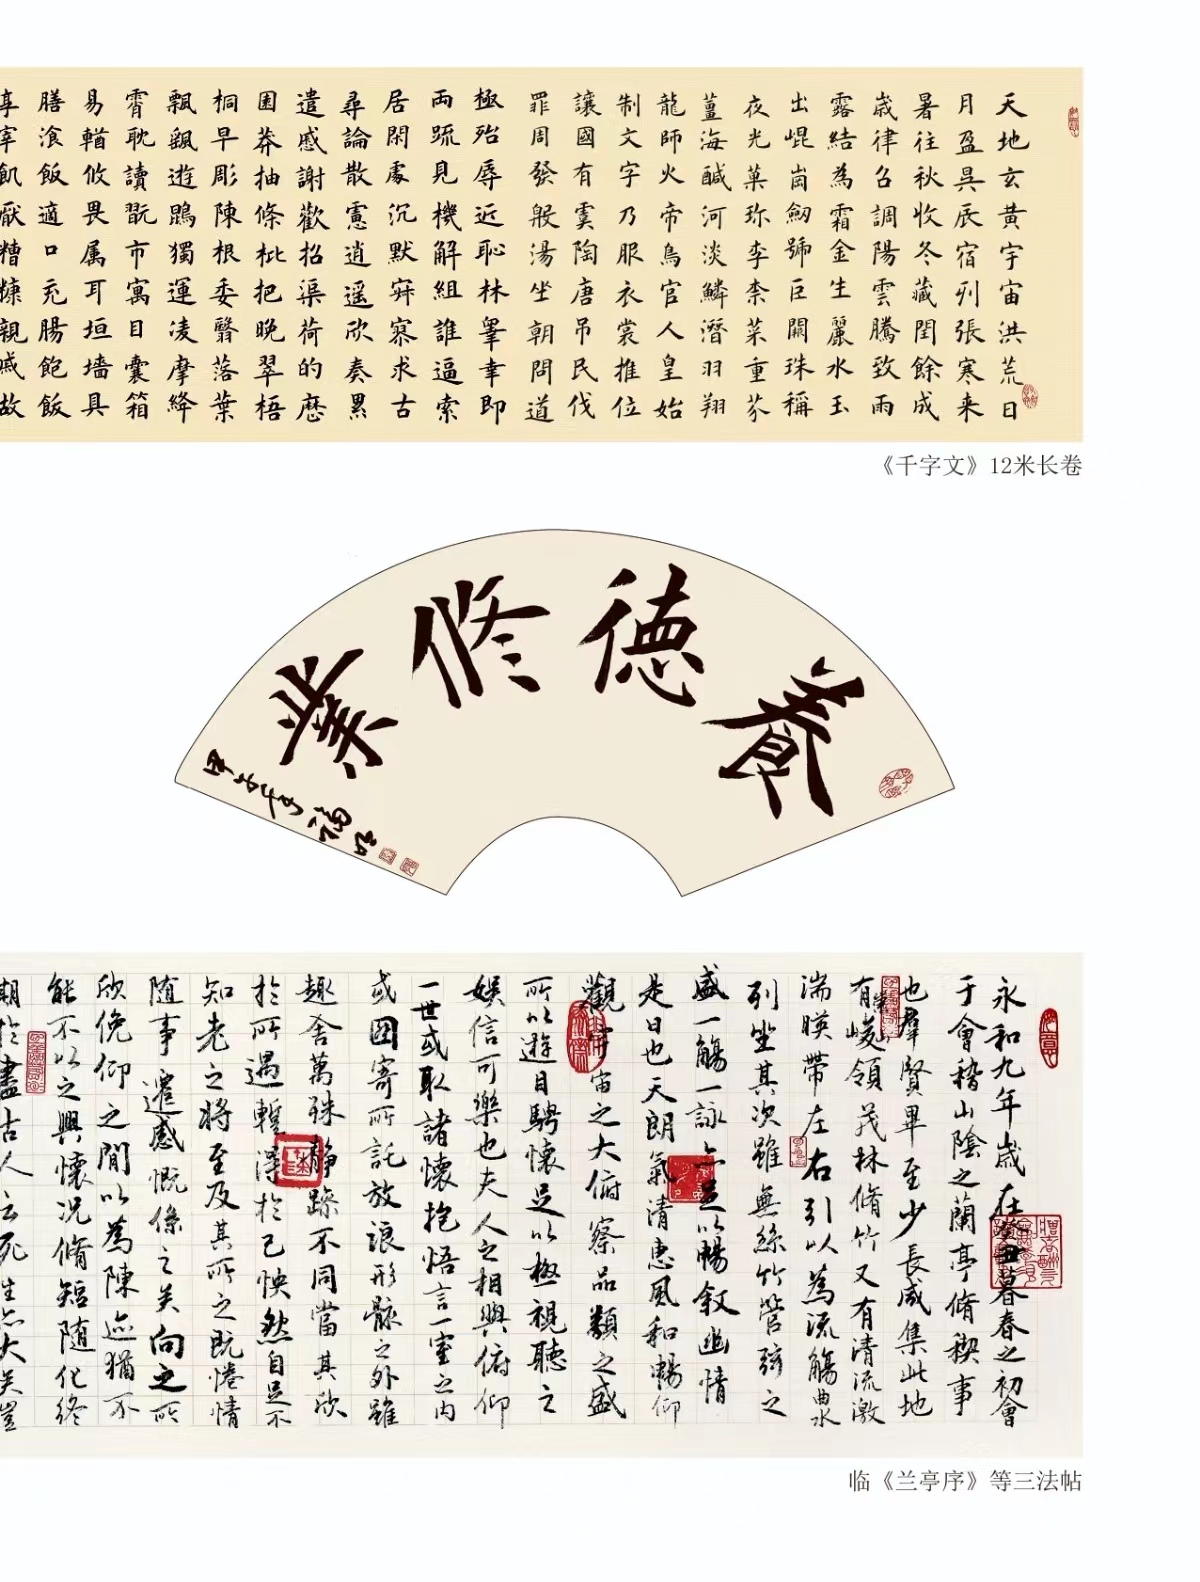 天地玄黄宇宙洪荒日
月盈昃辰宿列張寒来
暑往秋收冬藏閏餘成
歲律召調陽雲騰致雨
露結為霜金生麗水玉
出崐崗劒號巨闕珠稱
夜光菓珎李柰菜重芥
薑海醎河淡鱗潛羽翔
龍師火帝鳥官人皇始
制文字乃服衣裳推位
讓國有虞陶唐吊民伐
罪周發殷湯坐朝問道
極殆辱近恥林睾幸即
両疏見機解組誰逼索
居閑處沉默寂寥求古
尋論散慮逍遥欣奏累
遣慼謝歡招渠荷的歷
園莽抽條枇把晚翠梧
桐早彫陳根委翳落葉
飄飖遊鵾獨運凌摩絳
霄耽讀翫市寓目囊箱
易輶攸畏属耳垣墙具
膳飡飯適口充腸飽飯
享宰飢厭糟糠親戚故
《千字文》12米长卷
養德修業
永和九年歲在癸丑暮春之初會
于會稽山陰之蘭亭脩稧事
也羣賢畢至少長咸集此地
有崇峻領茂林脩竹又有清流激
湍暎帶左右引以為流觴曲水
列坐其次雖無絲竹管弦之
盛一觴一詠亦足以暢叙幽情
是日也天朗氣清惠風和暢仰
觀宇宙之大俯察品類之盛
所以遊目騁懷足以極視聽之
娛信可樂也夫人之相與俯仰
一世或取諸懷抱悟言一室之内
或因寄所託放浪形骸之外雖
趣舍萬殊静躁不同當其欣
於所遇蹔得於己怏然自足不
知老之将至及其所之既惓情
随事遷感慨係之矣向之所
欣俛仰之間以為陳迹猶不
能不以之興懷况脩短随化終
期於盡古人云死生亦大矣豈
临《兰亭序》等三法帖